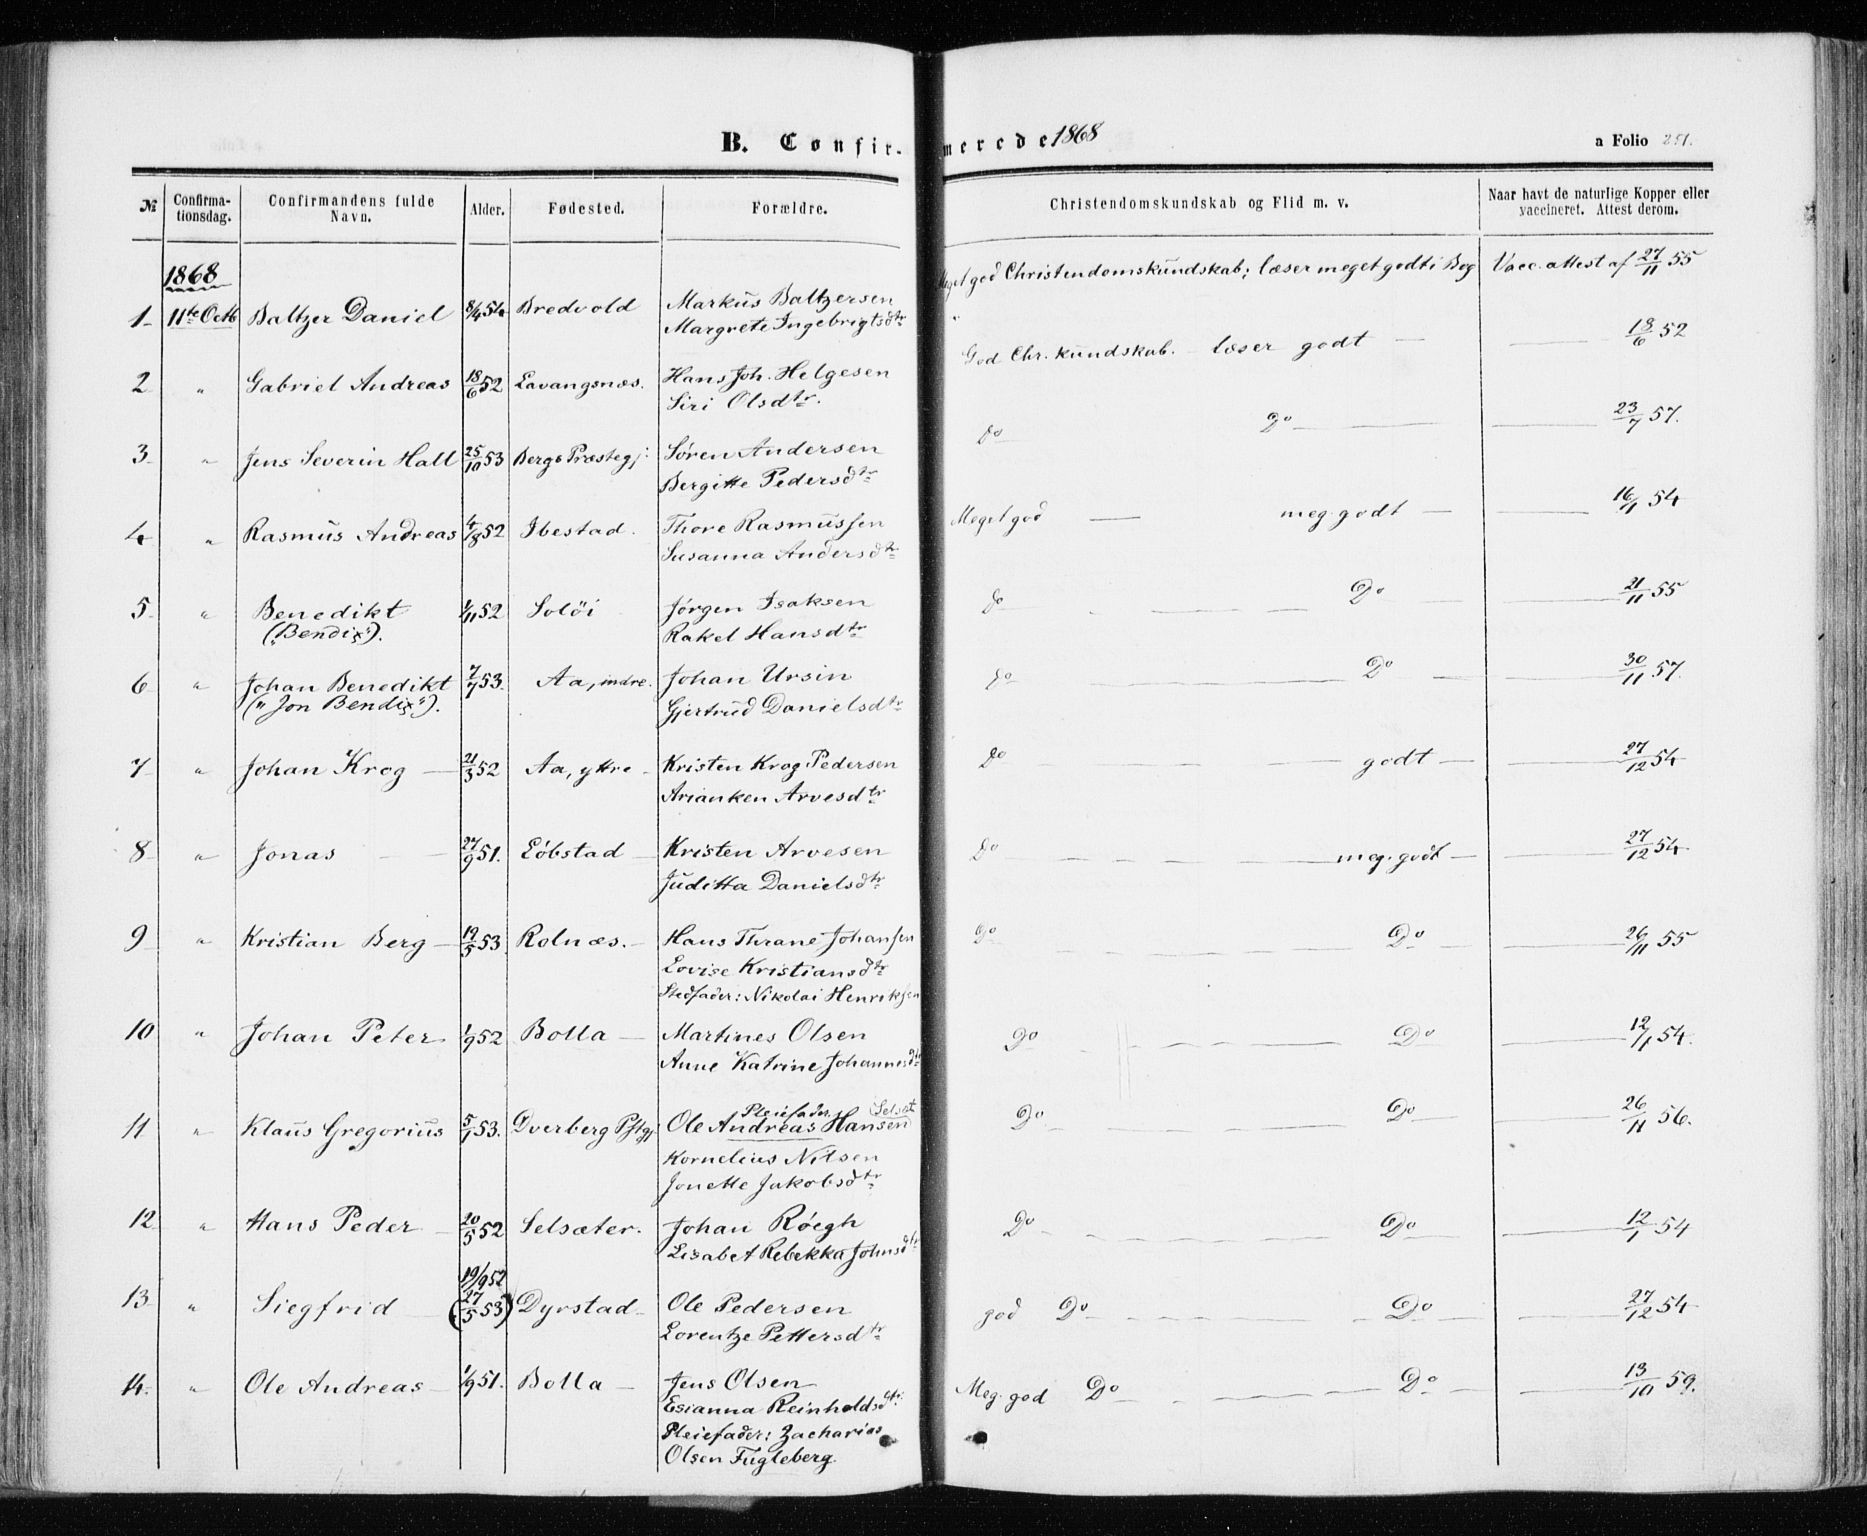 B. Confir- merede 1868
a Folio 251.
№ Confirma-tionsdag. Confirmandens fulde Navn. Alder. Fødested. Forældre. Christendomskundskab og Flid m. v. Naar havt de naturlige Kopper eller vaccineret. Attest derom.
1868
Meget god Christendomskundskab; læser meget godt i Bog Vacc. attest af 27/11 55
1 11te Octb Baltzer Daniel 8/4 54 Bredvold Markus Baltzersen
Margrete Ingebrigtsdtr
2 " Gabriel Andreas 18/6 52 Lavangsnæs. Hans Joh. Helgesen God Chr. kundskab. – læser godt — — 18/6 52
Siri Olsdtr.
3 " Jens Severin Hall 25/10 53 Bergs Præstegj: Søren Andersen do — Do — — 23/7 57.
Bergitte Pedersdtr
4 " Rasmus Andreas 4/8 52 Ibestad. Thore Rasmussen Meget god — meg. godt — — 16/1 54
Susanna Andersdtr
5 " Benedikt 1/11 52 Soløi Jørgen Isaksen do — Do — 21/11 55
("Bendix"). Rakel Hansdtr
6 " Johan Benedikt 7/7 53. Aa, indre. Johan Ursin do — Do — 30/11 57.
("Jon Bendix"). Gjertrud Danielsdtr
7 " Johan Krog — 21/3 52 Aa, yttre – Kristen Krog Pedersen do — godt — 27/12 54
Arianken Arvesdtr
8 " Jonas — 27/9 51. Løbstad — Kristen Arvesen Do — meg. godt — 27/12 54
Juditta Danielsdtr
9 " Kristian Berg — 19/5 53 Rolnæs. — Hans Thrane Johansen Do — Do — 26/11 55
Lovise Kristiansdtr
Stedfader: Nikolai Henriksen
10 " Johan Peter 1/9 52 Bolla — Martines Olsen Do — Do — 12/1 54.
Anne Katrine Johannesdtr
Pleiefader. Selset
11 " Klaus Gregorius 5/1 53. Dverberg Pstgj Ole Andreas Hansen Do — Do — 26/11 56.
Kornelius Nilsen
Jonette Jakobsdtr
12 " Hans Peder — 20/5 52 Selsæter. Johan Røegh Do — Do — 12/1 54
Lisabet Rebekka Johnsdtr
19/9 52
13 " Siegfrid — (27/5 53) Dyrstad — Ole Pedersen god Do — Do — 27/12 54
Lorentze Pettersdtr
14. " Ole Andreas — 1/9 51. Bolla — Jens Olsen Meg. god Do — Do — 13/10 59.
Esianna Reinholdsdtr.
Pleiefader: Zacharias
Olsen Fugleberg.